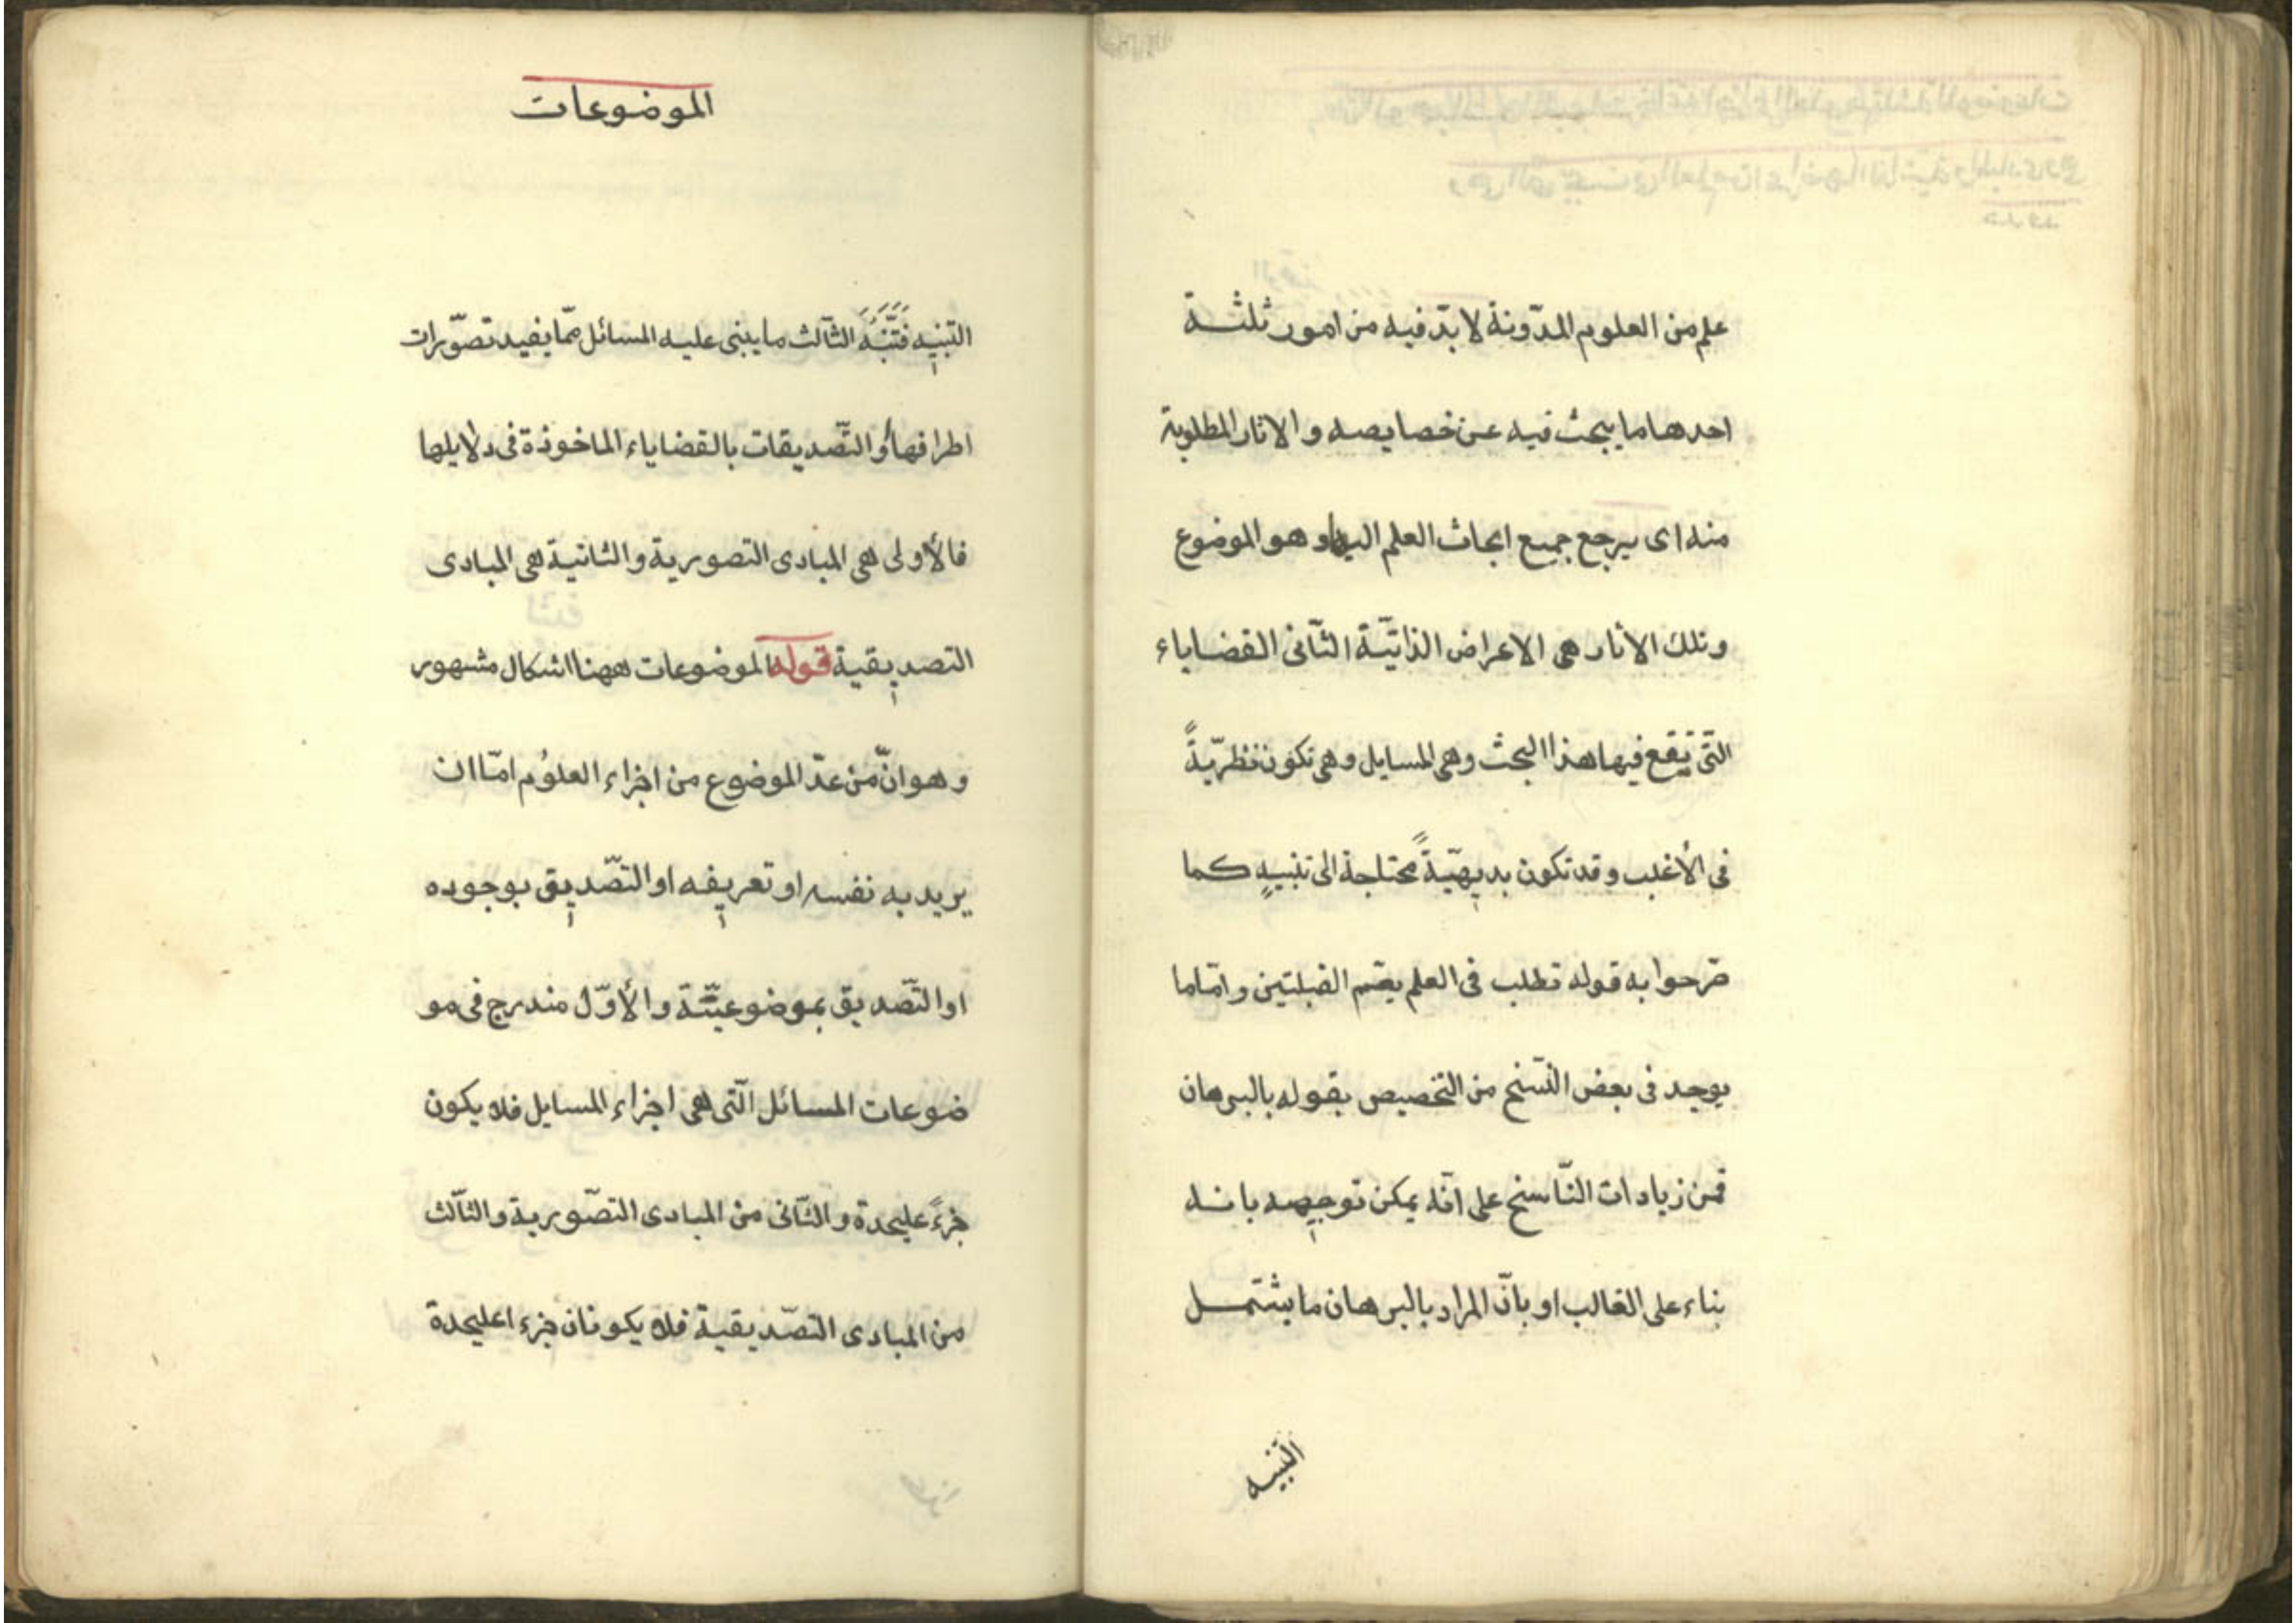 علم من العلوم المدّونة لا بدّ فيه من امور ثلثة
احدهما ما يبحث فيه عن خصايصه و الاثار المطلوبة
منه اى يرجع جميع ابحاث العلم اليه و هو الموضوع
و تلك الاثار هى الاعراض الذاتيّة الثّانى القضاياء
التّى يقع فيها هذا البحث وهى المسايل و هى تكون نظريّةً
فى الأغلب و قد تكون بديهيّةً محتاجة الى تنبيهٍ كما
صّرحوا به قوله تطلب فى العلم يعّم القبلتين و امّا ما
يوجد فى بعض النّسخ من التخصيص بقوله بالبرهان
فمن زيادات النّاسخ على انّه يمكن توجيهه بانه
بناء على الغالب او بانّ المراد بالبرهان ما يشتمل
التّنبيه
الموضوعات
التّنبيه فَتَنَبَّه الثّالث ما يبنى عليه المسائل ممّا يفيد تصوّرات
اطرافها أو التّصديقات بالقضاياء الماخوذة فى دلايلها
فالأولى هى المبادى التصورية و الثانية هى المبادى
التصديقية قوله الموضوعات ههنا اشكال مشهور
و هو انّ من عدّ الموضوع من اجزاء العلوُم امّا ان
يريد به نفسه او تعريفه او التّصديق بوجوده
او التّصديق بموضوعيّتة و الأوّل مندرج فى مو
ضوعات المسائل الّتى هى اجزاء المسايل فلا يكون
جزءً عليحدة و الثّانى من المبادى التصّورية و الثّالث
من المبادى التصّديقية فلا يكونان جزء اعليحدة